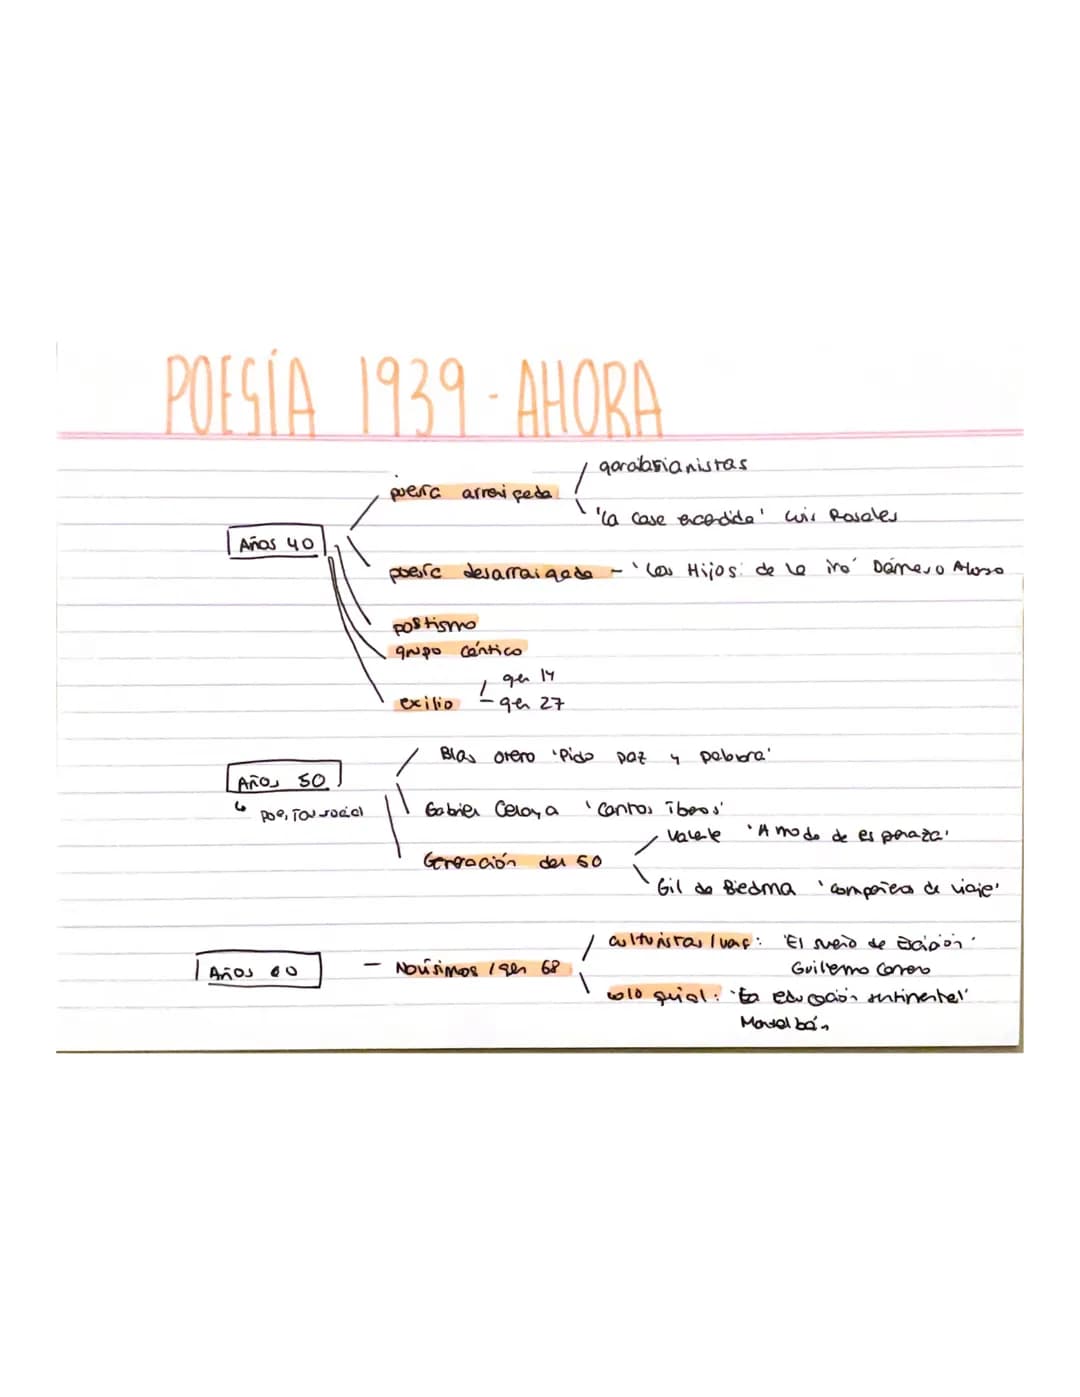 POESÍA 1939 - AHORA
Años 40
poesía arraigada
garcilasianistas
'La casa encendida' Luis Rosales
poesía desarraigada - 'Los Hijos de la ira' Dámaso Alonso
postismo
grupo cántico
exilio
gen 14
gen 27
Años 50
↳ poesía social
Blas Otero 'Pido paz y palabra'
Gabriel Celaya 'Cantos íberos'
Generación del 50
Valente 'A modo de esperanza'
Gil de Biedma 'compañeros de viaje'
Años 60
- Novísimos / gen 68
culturistas / : 'El sueño de Escipión'
Guillermo Carnero
coloquial: 'La educación sentimental'
Montalbán